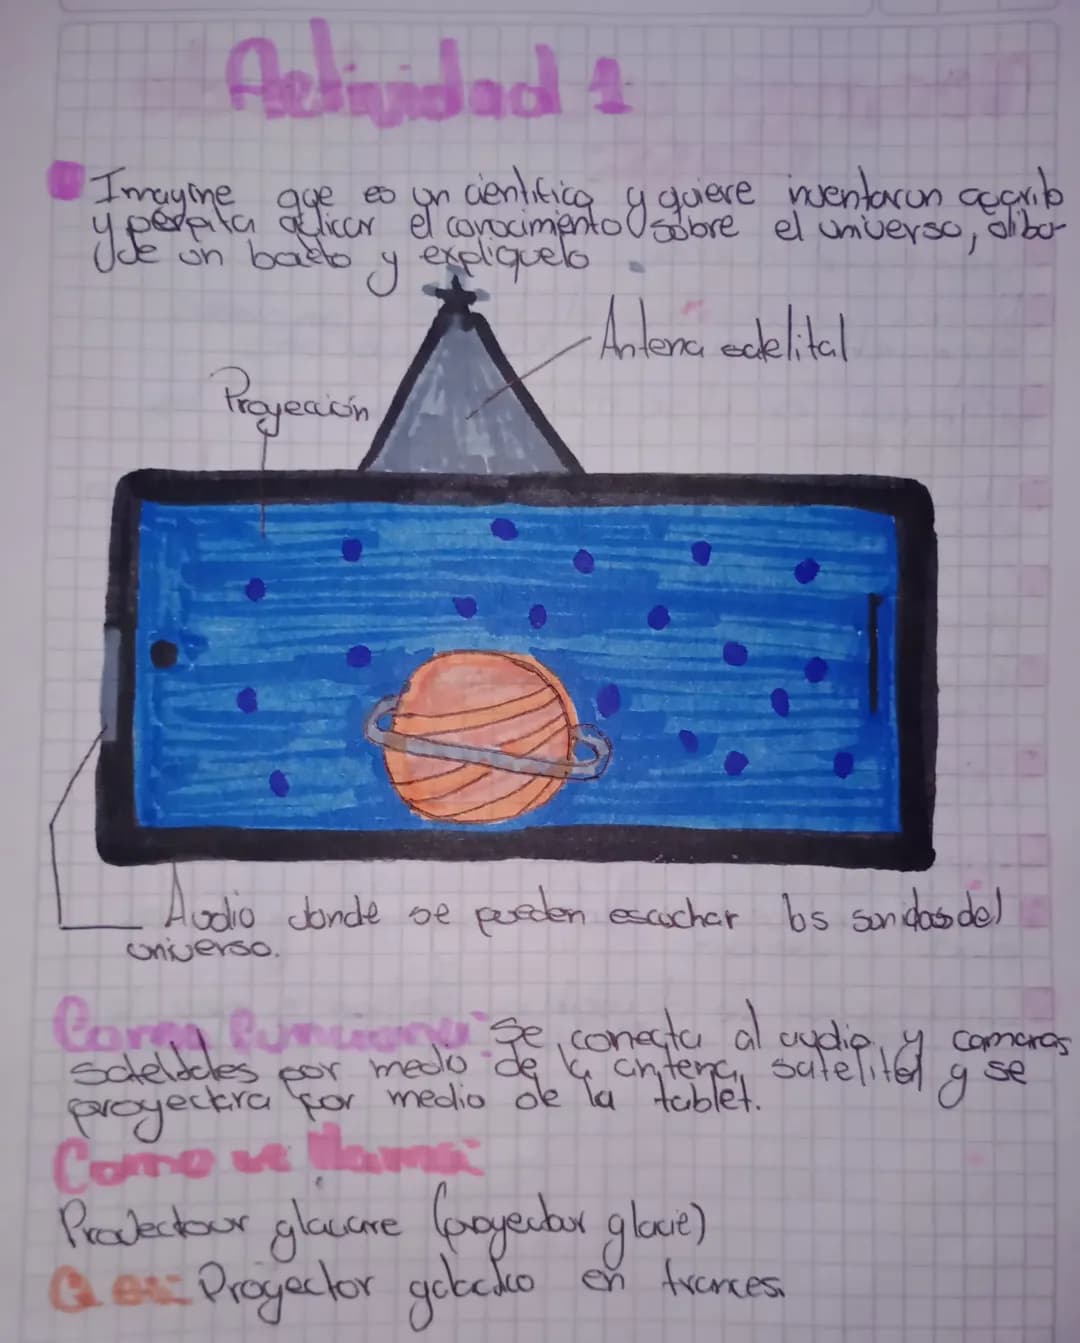 Actividad 1
Imagine que es un cientifico y quiere inventar un
y permita aplicar el conocimiento sobre el universo, dibu-
je un boceto y expliquelo
Antena satelital
Proyección
Audio donde se pueden escuchar los sonidos del
universo.
Como funciona: Se conecta al audio y camaras
satelitales por medio de la antena satelital y se
proyectara por medio de la tablet.
Como se llama:
glaciare (proyector glacie)
es: Proyector en frances.